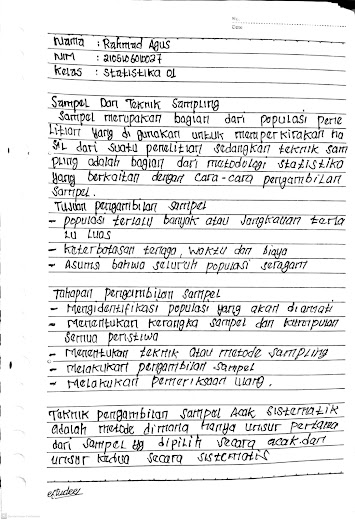 No.
Date
Nama : Rahmad Agus
NIM : 210510601027
Kelas : Statistika 01
Sampel Dan Teknik Sampling
Sampel merupakan bagian dari populasi pene
litian yang di gunakan untuk memperkirakan ha
sil dari suatu penelitian sedangkan teknik sam
pling adalah bagian dari metodologi statistika
yang berkaitan dengan cara-cara pengambilan
sampel.
Tujuan pengambilan sampel
- populasi terlalu banyak atau Jangkauan terla
lu luas
- keterbatasan tenaga, waktu dan biaya
- Asumsi bahwa seluruh populasi seragam
Tahapan pengambilan sampel
- Mengidentifikasi populasi yang akan diamati
- Menentukan kerangka sampel dan kumpulan
semua peristiwa
- Menentukan teknik atau metode sampling
- melakukan pengambilan sampel
- Melakukan pemeriksaan ulang.
Teknik pengambilan sampel Acak Sistematik
adalah metode dimana hanya unsur pertama
dari sampel yg dipilih secara acak dan
unsur kedua secara sistematis